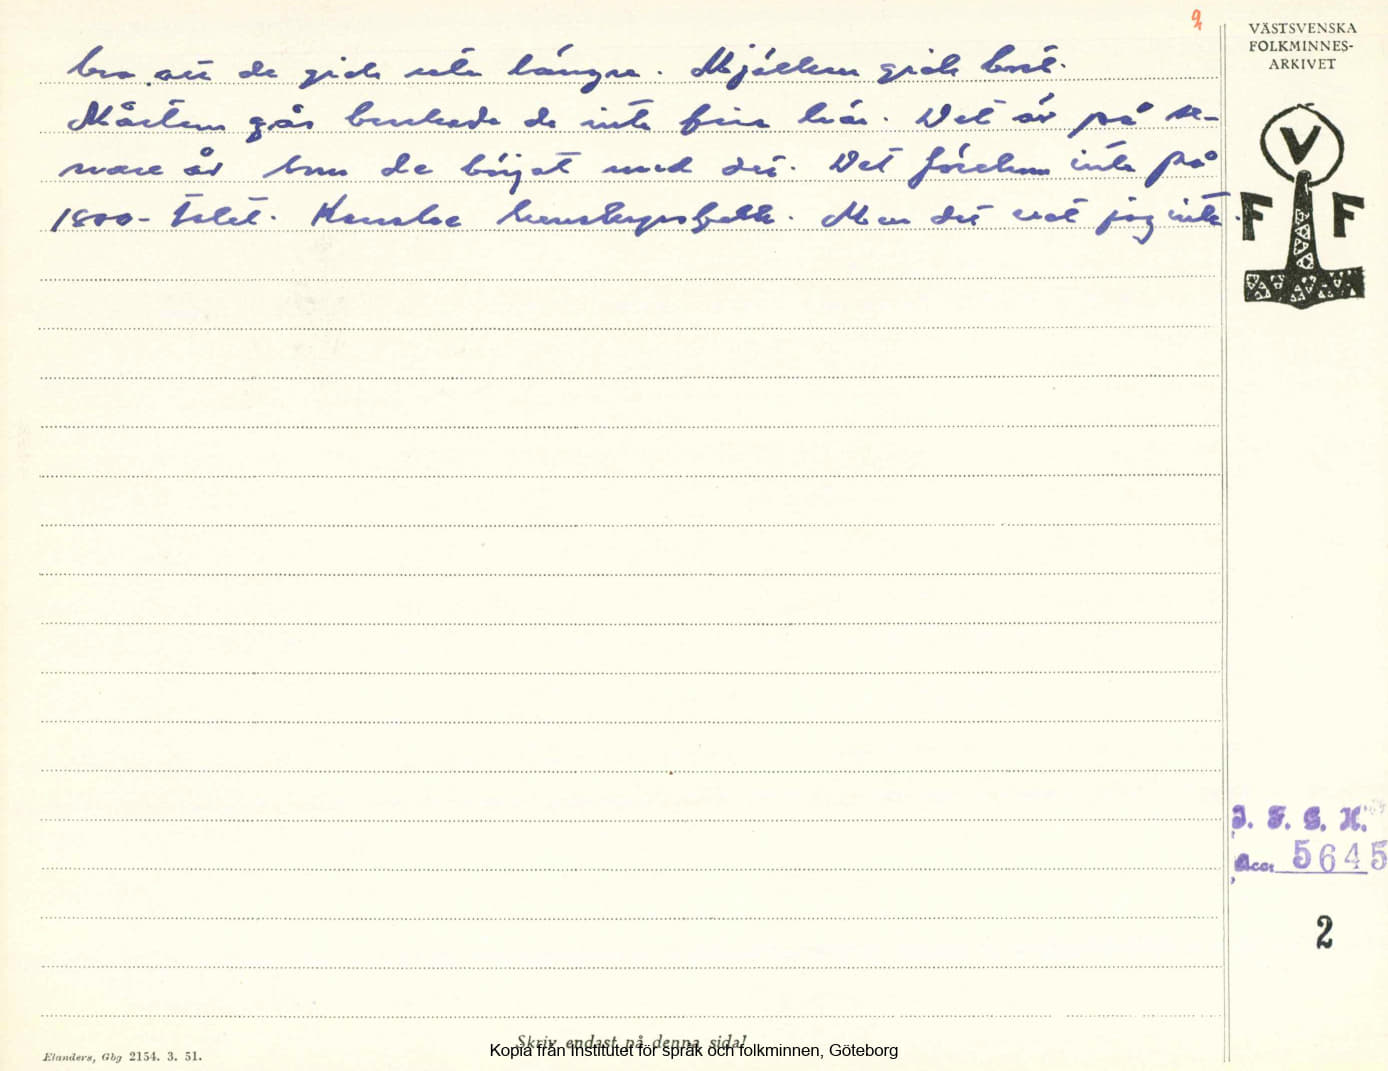 2
VÄSTSVENSKA
FOLKMINNES-
ARKIVET
bra att de gick ute längre. Mjölken gick bort.
Mårten gås brukade de inte fira här. Det är på se-
nare år som de börjat med det. Det förekom inte på
1800-talet. Kanske herrskapsfolk. Men det vet jag inte.
V
F F
I. F. G. H.
Acc. 5645
2
Skriv endast på denna sida!
Kopia från Institutet för språk och folkminnen, Göteborg
Elanders, Gbg 2154. 3. 51.